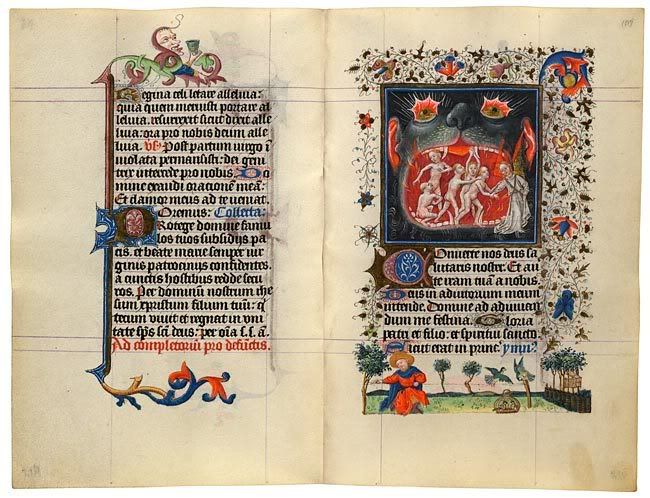 Regina celi letare alleluia:
quia quem meruisti portare al
leluia. resurrexit sicut dixit alle
luia: ora pro nobis deum alle
luia. Vs. Post partum uirgo ī
uiolata permansisti: dei geni
trix intercede pro nobis. Do
mine exaudi orationē meā:
Et clamor meus ad te ueniat.
Oremus: Collecta:
Protege domine famu
los tuos subsidijs pa
cis. et beate marie semper uir
ginis patrocinijs confidentes.
a cunctis hostibus redde secu
ros. Per dominum nostrum ihe
sum xpristum filium tuum: q
tecum uiuit et regnat in uni
tate sp̄s sc̄i deus: per oīa. s. s. a.
Ad completoriū pro defūctis.
Conuerte nos deus sa
lutaris noster. Et au
erte iram tuā a nobis.
Deus in adiutorium meum
intende. Domine ad adiuuan
dum me festina. Gloria
patri et filio: et spiritui sancto
Sicut erat in princ.